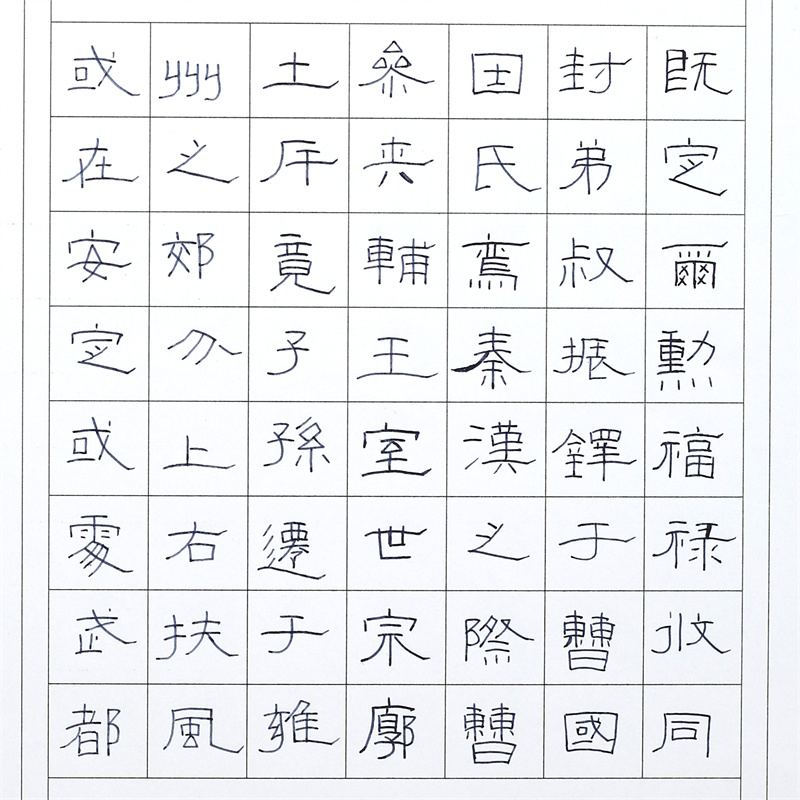 既定爾勲福禄攸同
封弟叔振鐸于曹國
因氏焉秦漢之際曹
參夾輔王室世宗廓
土斥竟子孫遷于雍
州之郊分上右扶風
或在安定或處武都